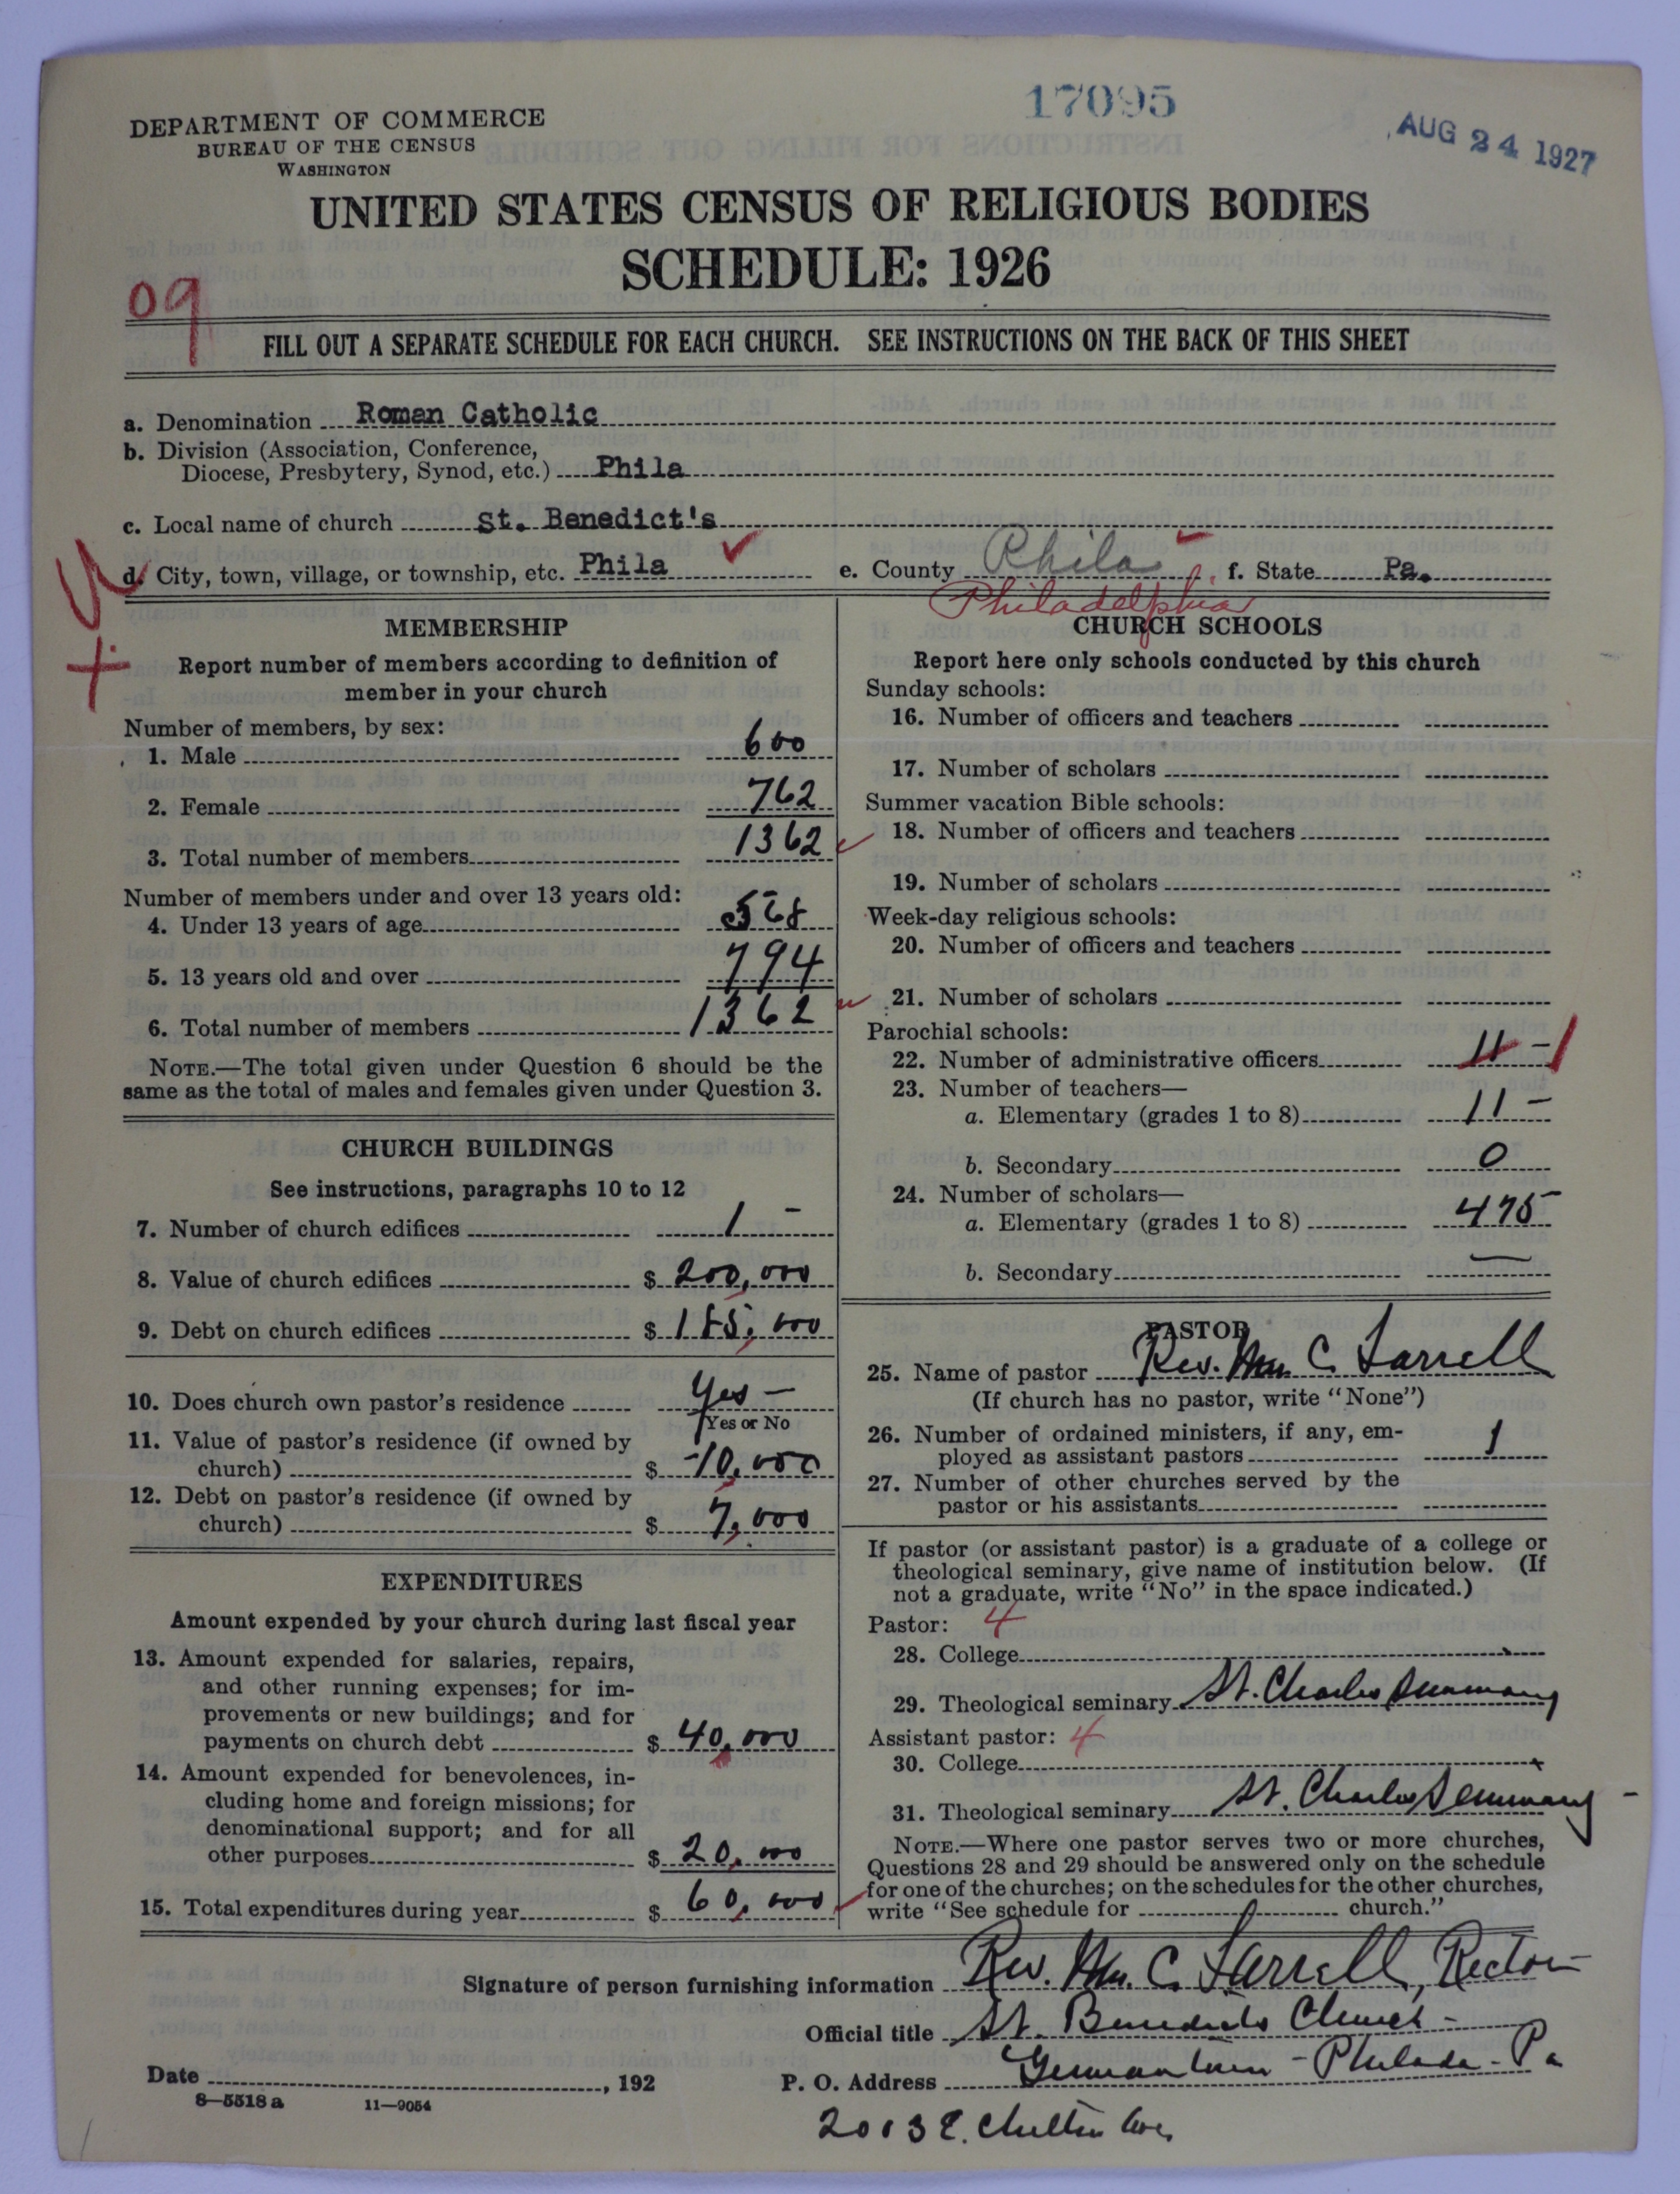 17095
AUG 24 1927
DEPARTMENT OF COMMERCE
BUREAU OF THE CENSUS
WASHINGTON
UNITED STATES CENSUS OF RELIGIOUS BODIES
SCHEDULE: 1926
09
FILL OUT A SEPARATE SCHEDULE FOR EACH CHURCH. SEE INSTRUCTIONS ON THE BACK OF THIS SHEET
a. Denomination Roman Catholic
b. Division (Association, Conference,
Diocese, Presbytery, Synod, etc.) Phila
c. Local name of church St. Benedict's
d. City, town, village, or township, etc. Phila e. County Phila f. State Pa.
Philadelphia
MEMBERSHIP
Report number of members according to definition of
member in your church
Number of members, by sex:
1. Male 600
2. Female 762
3. Total number of members 1362
Number of members under and over 13 years old:
4. Under 13 years of age 568
5. 13 years old and over 794
6. Total number of members 1362
NOTE.—The total given under Question 6 should be the
same as the total of males and females given under Question 3.
CHURCH BUILDINGS
See instructions, paragraphs 10 to 12
7. Number of church edifices 1 -
8. Value of church edifices $ 200,000
9. Debt on church edifices $ 185,000
10. Does church own pastor's residence Yes —
Yes or No
11. Value of pastor's residence (if owned by
church) $ 10,000
12. Debt on pastor's residence (if owned by
church) $ 7,000
EXPENDITURES
Amount expended by your church during last fiscal year
13. Amount expended for salaries, repairs,
and other running expenses; for im-
provements or new buildings; and for
payments on church debt $ 40,000
14. Amount expended for benevolences, in-
cluding home and foreign missions; for
denominational support; and for all
other purposes $ 20,000
15. Total expenditures during year $ 60,000
CHURCH SCHOOLS
Report here only schools conducted by this church
Sunday schools:
16. Number of officers and teachers
17. Number of scholars
Summer vacation Bible schools:
18. Number of officers and teachers
19. Number of scholars
Week-day religious schools:
20. Number of officers and teachers
21. Number of scholars
Parochial schools:
22. Number of administrative officers 11 - 1
23. Number of teachers—
a. Elementary (grades 1 to 8) 11 —
b. Secondary 0
24. Number of scholars—
a. Elementary (grades 1 to 8) 475
b. Secondary —
PASTOR
25. Name of pastor Rev. Wm C. Farrell
(If church has no pastor, write "None")
26. Number of ordained ministers, if any, em-
ployed as assistant pastors 1
27. Number of other churches served by the
pastor or his assistants
If pastor (or assistant pastor) is a graduate of a college or
theological seminary, give name of institution below. (If
not a graduate, write "No" in the space indicated.)
Pastor: 4
28. College
29. Theological seminary St. Charles Seminary
Assistant pastor: 4
30. College
31. Theological seminary St. Charles Seminary -
NOTE.—Where one pastor serves two or more churches,
Questions 28 and 29 should be answered only on the schedule
for one of the churches; on the schedules for the other churches,
write "See schedule for church."
Signature of person furnishing information Rev. Wm. C. Farrell, Rector
Official title St. Benedicts Church -
Date , 192 P. O. Address Germantown - Philada - Pa
8—5518 a 11—9054
2013 E. Chelten Ave,